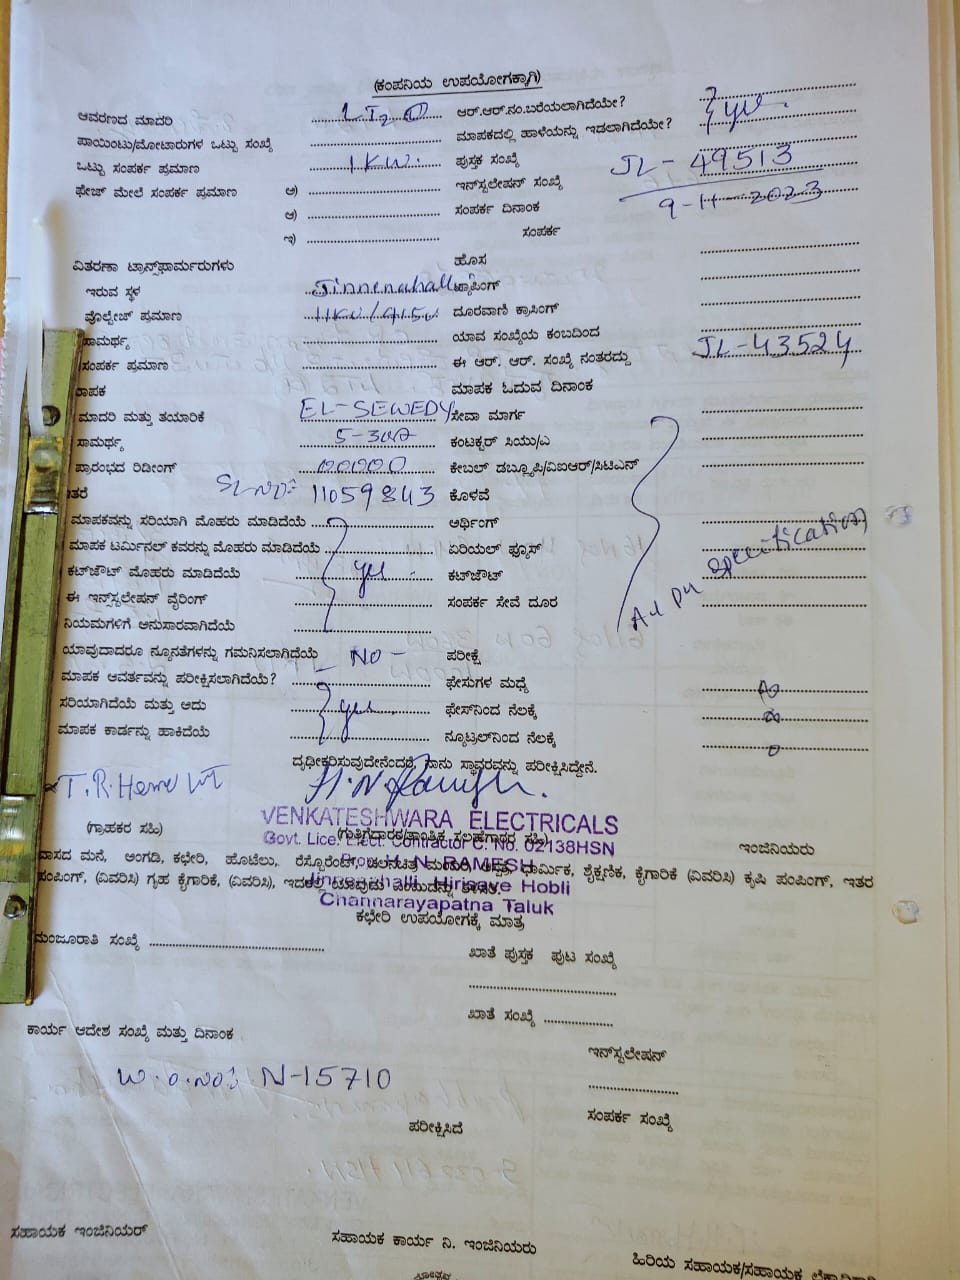 (ಕಂಪನಿಯ ಉಪಯೋಗಕ್ಕಾಗಿ)
ಆವರಣದ ಮಾದರಿ ಆರ್.ಆರ್.ನಂ.ಬರೆಯಲಾಗಿದೆಯೇ?
ಪಾಯಿಂಟು/ಮೋಟಾರುಗಳ ಒಟ್ಟು ಸಂಖ್ಯೆ ಮಾಪಕದಲ್ಲಿ ಹಾಳೆಯನ್ನು ಇಡಲಾಗಿದೆಯೇ?
ಒಟ್ಟು ಸಂಪರ್ಕ ಪ್ರಮಾಣ 1KW. ಪುಸ್ತಕ ಸಂಖ್ಯೆ JL-49513
ಫೇಜ್ ಮೇಲೆ ಸಂಪರ್ಕ ಪ್ರಮಾಣ ಅ) ಇನ್‌ಸ್ಟಲೇಷನ್ ಸಂಖ್ಯೆ 9-11-2023
ಆ) ಸಂಪರ್ಕ ದಿನಾಂಕ
ಇ) ಸಂಪರ್ಕ
ವಿತರಣಾ ಟ್ರಾನ್ಸ್‌ಫಾರ್ಮರುಗಳು ಹೊಸ
ಇರುವ ಸ್ಥಳ Jinnenahalli ಟ್ಯಾಪಿಂಗ್
ವೊಲ್ಟೇಜ್ ಪ್ರಮಾಣ 11KV/415V ದೂರವಾಣಿ ಕ್ರಾಸಿಂಗ್
ಸಾಮರ್ಥ್ಯ ಯಾವ ಸಂಖ್ಯೆಯ ಕಂಬದಿಂದ
ಸಂಪರ್ಕ ಪ್ರಮಾಣ ಈ ಆರ್. ಆರ್. ಸಂಖ್ಯೆ ನಂತರದ್ದು JL-43524
ಮಾಪಕ ಓದುವ ದಿನಾಂಕ
ಮಾದರಿ ಮತ್ತು ತಯಾರಿಕೆ EL-SEWEDY ಸೇವಾ ಮಾರ್ಗ
ಸಾಮರ್ಥ್ಯ 5-30A ಕಂಟಕ್ಟರ್ ಸಿಯು/ಎ
ಪ್ರಾರಂಭದ ರಿಡೀಂಗ್ 00000 ಕೇಬಲ್ ಡಬ್ಲ್ಯೂಪಿ/ವಿಐಆರ್/ಸಿಟಿಎನ್
SL NO: 11059843 ಕೊಳವೆ
ಮಾಪಕವನ್ನು ಸರಿಯಾಗಿ ಮೊಹರು ಮಾಡಿದೆಯೆ ಅರ್ಥಿಂಗ್
ಮಾಪಕ ಟರ್ಮಿನಲ್ ಕವರನ್ನು ಮೊಹರು ಮಾಡಿದೆಯೆ ಏರಿಯಲ್ ಫ್ಯೂಸ್ specification
ಕಟ್‌ಜೌಟ್ ಮೊಹರು ಮಾಡಿದೆಯೆ yes ಕಟ್‌ಜೌಟ್
ಈ ಇನ್ಸ್‌ಟಲೇಷನ್ ವೈರಿಂಗ್ ಸಂಪರ್ಕ ಸೇವೆ ದೂರ
ನಿಯಮಗಳಿಗೆ ಅನುಸಾರವಾಗಿದೆಯೆ
ಯಾವುದಾದರೂ ನ್ಯೂನತೆಗಳನ್ನು ಗಮನಿಸಲಾಗಿದೆಯೆ - NO - ಪರೀಕ್ಷೆ
ಮಾಪಕ ಆವರ್ತವನ್ನು ಪರೀಕ್ಷಿಸಲಾಗಿದೆಯೆ? ಫೇಸುಗಳ ಮಧ್ಯೆ
ಸರಿಯಾಗಿದೆಯೆ ಮತ್ತು ಅದು yes ಫೇಸ್‌ನಿಂದ ನೆಲಕ್ಕೆ
ಮಾಪಕ ಕಾರ್ಡನ್ನು ಹಾಕಿದೆಯೆ ನ್ಯೂಟ್ರಲ್‌ನಿಂದ ನೆಲಕ್ಕೆ
ದೃಢೀಕರಿಸುವುದೇನೆಂದರೆ, ನಾನು ಸ್ಥಾವರವನ್ನು ಪರೀಕ್ಷಿಸಿದ್ದೇನೆ.
VENKATESHWARA ELECTRICALS
(ಗ್ರಾಹಕರ ಸಹಿ) (ಗುತ್ತಿಗೆದಾರರ/ತಾಂತ್ರಿಕ ಸಲಹಗಾರರ ಸಹಿ) ಇಂಜಿನಿಯರು
Govt. Lice. Elect. Contractor C. No. 02138HSN
Prop: H. N. RAMESH
ವಾಸದ ಮನೆ, ಅಂಗಡಿ, ಕಛೇರಿ, ಹೊಟೆಲು, ರೆಸ್ಟೋರೆಂಟ್, ಧಾರ್ಮಿಕ, ಶೈಕ್ಷಣಿಕ, ಕೈಗಾರಿಕೆ (ವಿವರಿಸಿ) ಕೃಷಿ ಪಂಪಿಂಗ್, ಇತರ
ಪಂಪಿಂಗ್, (ವಿವರಿಸಿ) ಗೃಹ ಕೈಗಾರಿಕೆ, (ವಿವರಿಸಿ),
Jinnenahalli, Hirisave Hobli
Channarayapatna Taluk
ಕಛೇರಿ ಉಪಯೋಗಕ್ಕೆ ಮಾತ್ರ
ಮಂಜೂರಾತಿ ಸಂಖ್ಯೆ ಖಾತೆ ಪುಸ್ತಕ ಪುಟ ಸಂಖ್ಯೆ
ಖಾತೆ ಸಂಖ್ಯೆ
ಕಾರ್ಯ ಆದೇಶ ಸಂಖ್ಯೆ ಮತ್ತು ದಿನಾಂಕ
ಇನ್‌ಸ್ಟಲೇಷನ್
W.O.NO: N-15710
ಸಂಪರ್ಕ ಸಂಖ್ಯೆ
ಪರೀಕ್ಷಿಸಿದೆ
ಸಹಾಯಕ ಇಂಜಿನಿಯರ್ ಸಹಾಯಕ ಕಾರ್ಯ ನಿ. ಇಂಜಿನಿಯರು
ಹಿರಿಯ ಸಹಾಯಕ/ಸಹಾಯಕ